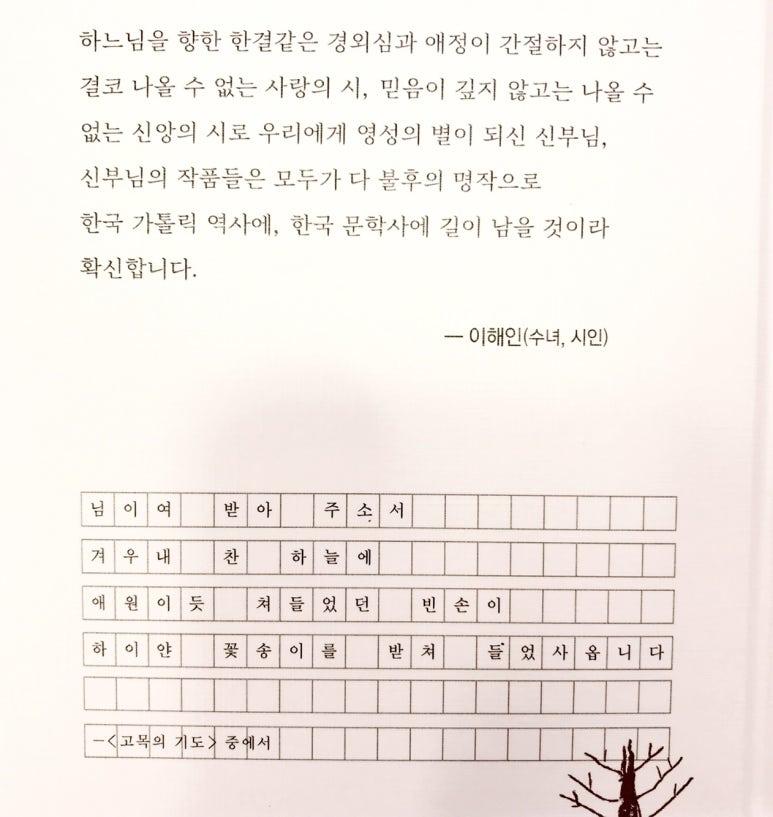 하느님을 향한 한결같은 경외심과 애정이 간절하지 않고는
결코 나올 수 없는 사랑의 시, 믿음이 깊지 않고는 나올 수
없는 신앙의 시로 우리에게 영성의 별이 되신 신부님,
신부님의 작품들은 모두가 다 불후의 명작으로
한국 가톨릭 역사에, 한국 문학사에 길이 남을 것이라
확신합니다.
— 이해인(수녀, 시인)
님이여 받아 주소서
겨우내 찬 하늘에
애원이듯 쳐들었던 빈손이
하이얀 꽃송이를 받쳐 들었사옵니다
-<고목의 기도> 중에서